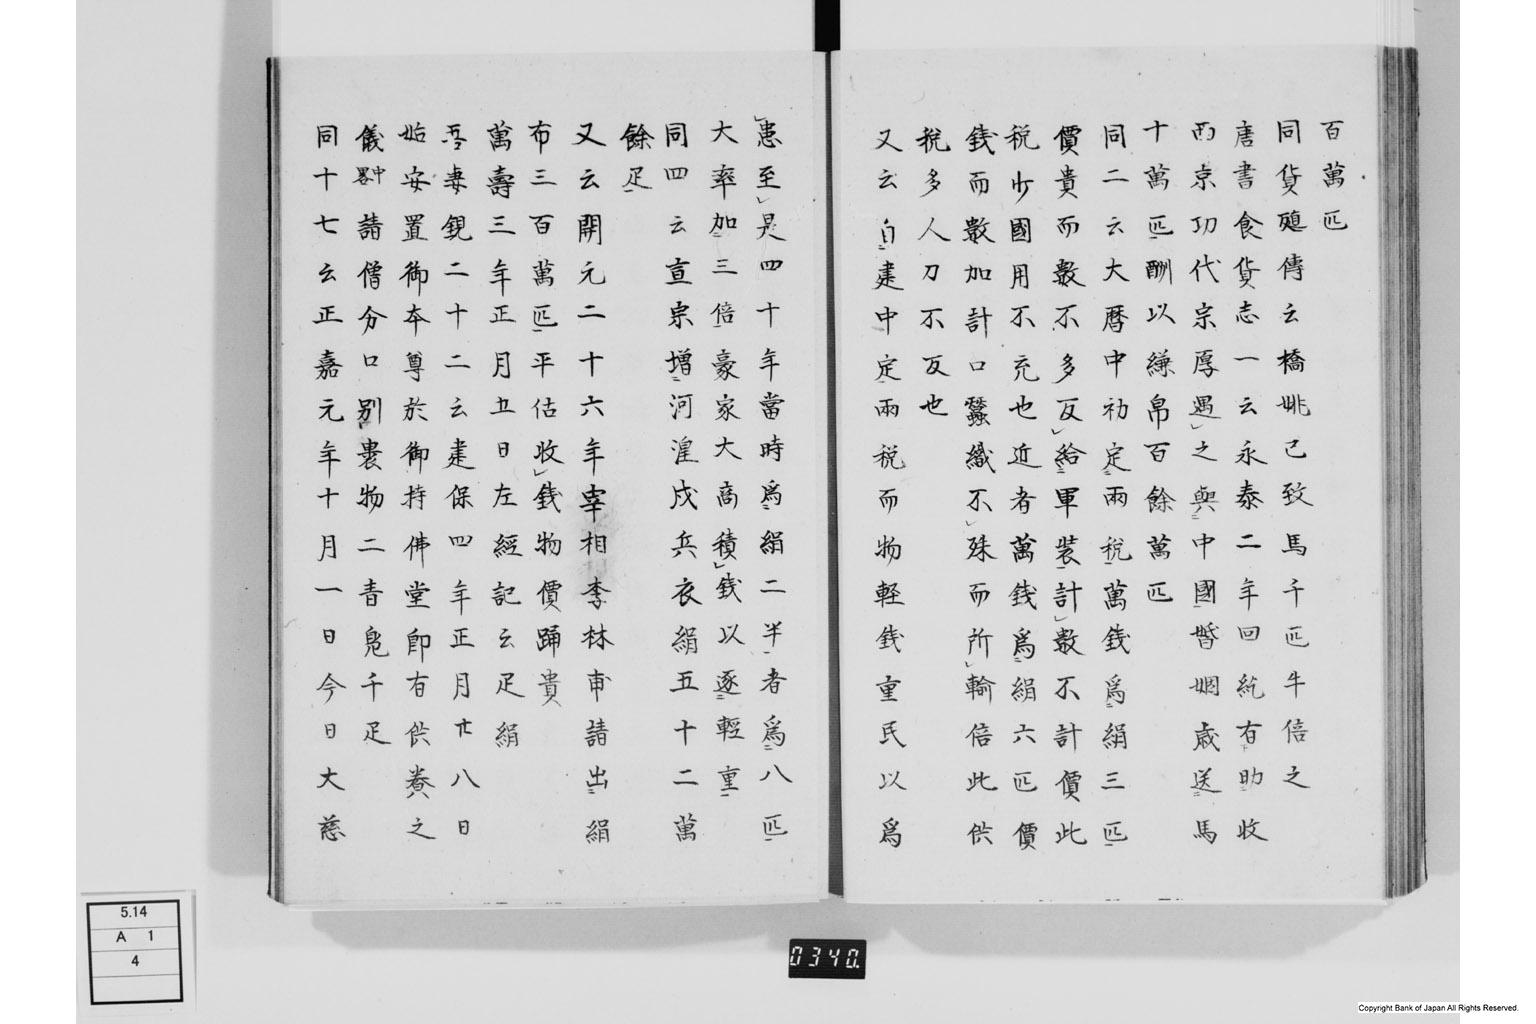 百萬匹
同貨殖傳云橋姚已致馬千匹牛倍之
唐書食貨志一云永泰二年回紇有助收
西京功代宗厚遇之與中國婚姻歳送馬
十萬匹酬以縑帛百餘萬匹
同二云大暦中初定兩税萬錢爲絹三匹
價貴而數不多反給軍装計數不計價此
税少國用不充也近者萬錢爲絹六匹價
錢而數加計口蠶織不殊而所輸倍此供
税多人刀不反也
又云自建中定兩税而物輕錢重民以爲
患至是四十年當時爲絹二半者爲八匹
大率加三倍豪家大商積錢以逐輕重
同四云宣宗增河湟戍兵衣絹五十二萬
餘疋
又云開元二十六年宰相李林甫請出絹
布三百萬匹平估收錢物價踊貴
萬壽三年正月五日左經記云疋絹
吾妻鏡二十二云建保四年正月廿八日
始安置御本尊於御持佛堂即有供養之
儀畧中請僧分口別嚢物二青鳧千疋
同十七云正嘉元年十月一日今日大慈
5.14
A 1
4
0340.
Copyright Bank of Japan All Rights Reserved.